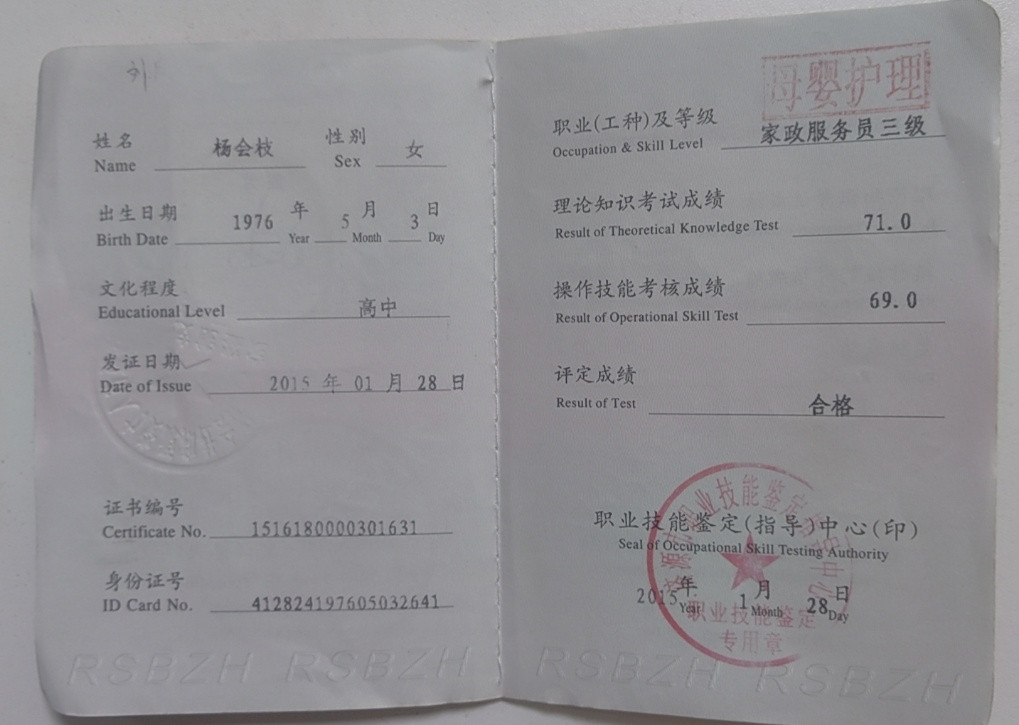 姓名 杨会枝 性别 女
Name Sex
出生日期 1976 年 5 月 3 日
Birth Date Year Month Day
文化程度 高中
Educational Level
发证日期 2015 年 01 月 28 日
Date of Issue
证书编号
Certificate No. 1516180000301631
身份证号
ID Card No. 412824197605032641
RSBZH RSBZH
母婴护理
职业(工种)及等级 家政服务员三级
Occupation & Skill Level
理论知识考试成绩 71.0
Result of Theoretical Knowledge Test
操作技能考核成绩 69.0
Result of Operational Skill Test
评定成绩
Result of Test 合格
职业技能鉴定(指导)中心(印)
Seal of Occupational Skill Testing Authority
2015 年 1 月 28 日
Year Month Day
职业技能鉴定
专用章
RSBZH RSBZH